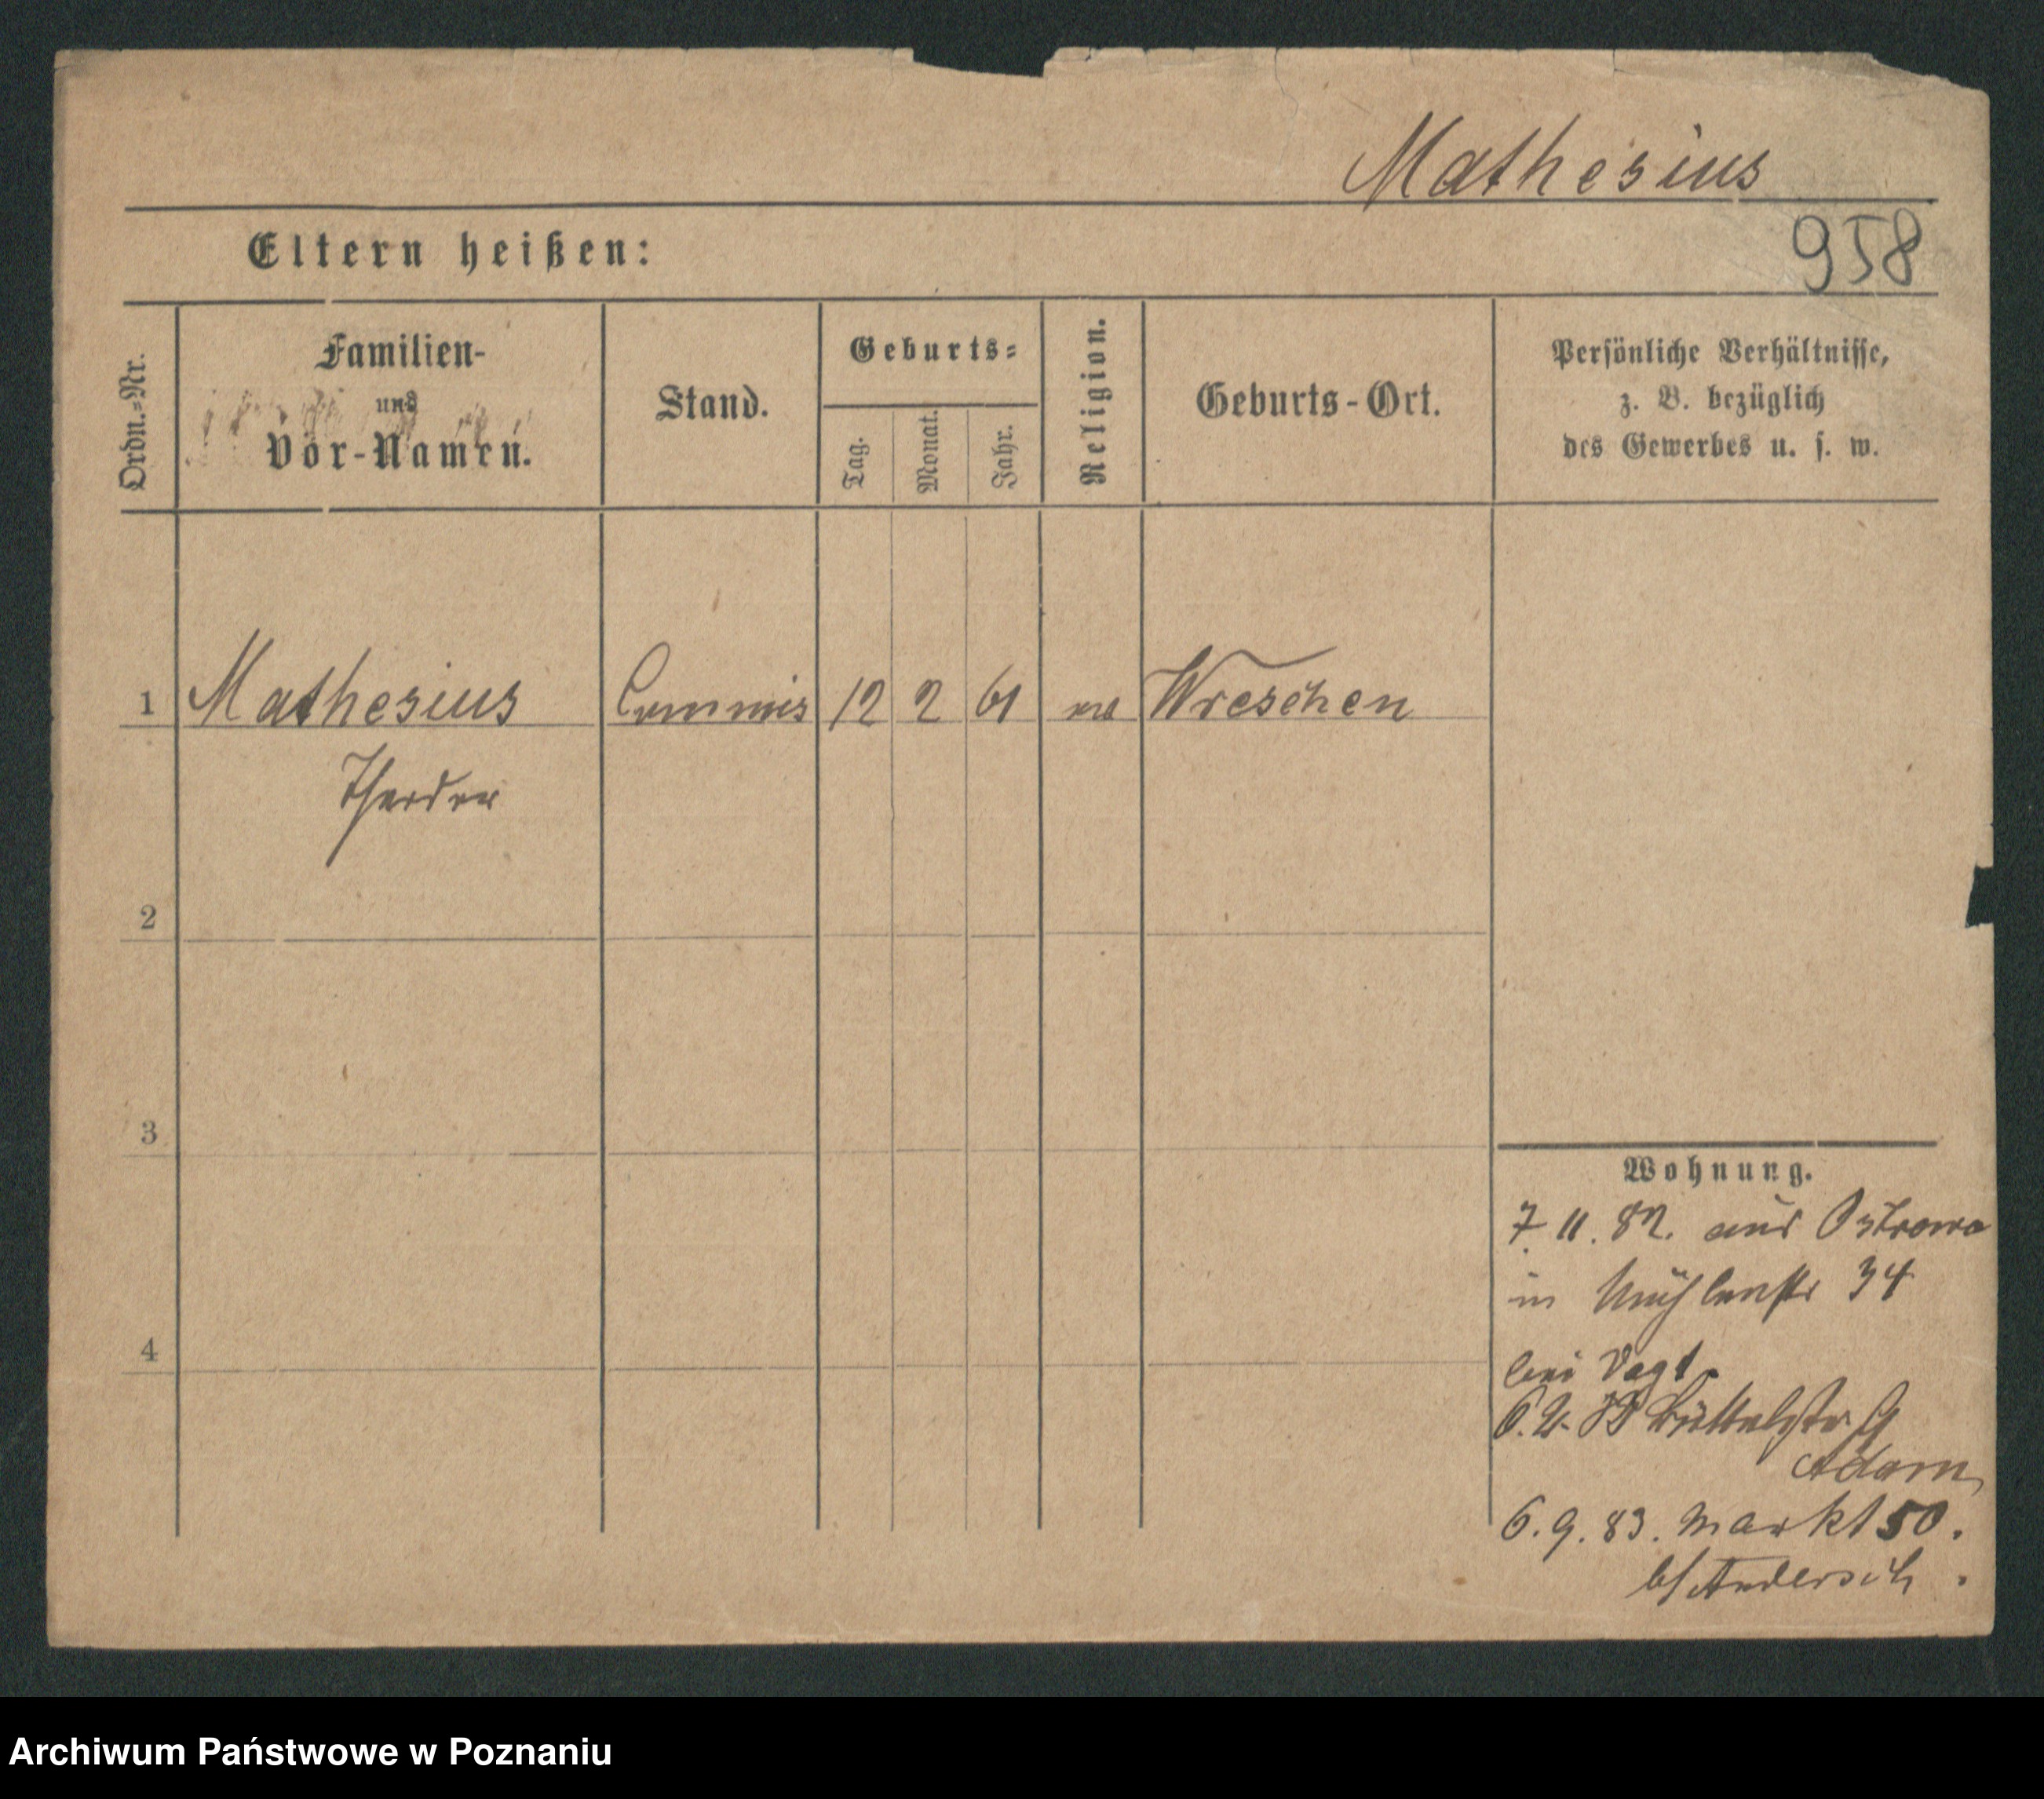 Mathesius
958
Eltern heißen:
Ordn.-Nr.
Familien-
und
Vor-Namen.
Stand.
Geburts-
Tag.
Monat.
Jahr.
Religion.
Geburts-Ort.
Persönliche Verhältnisse,
z. B. bezüglich
des Gewerbes u. s. w.
1 Mathesius Commis 12 2 61 Wreschen
Theodor
2
3
4
Wohnung.
7. 11. 82. aus Ostrowo
in Mühlenstr 34
bei Vogt.
6. 2. Büttelstr. 9
Adam
6. 9. 83. Markt 50.
b/ Andersch.
Archiwum Państwowe w Poznaniu